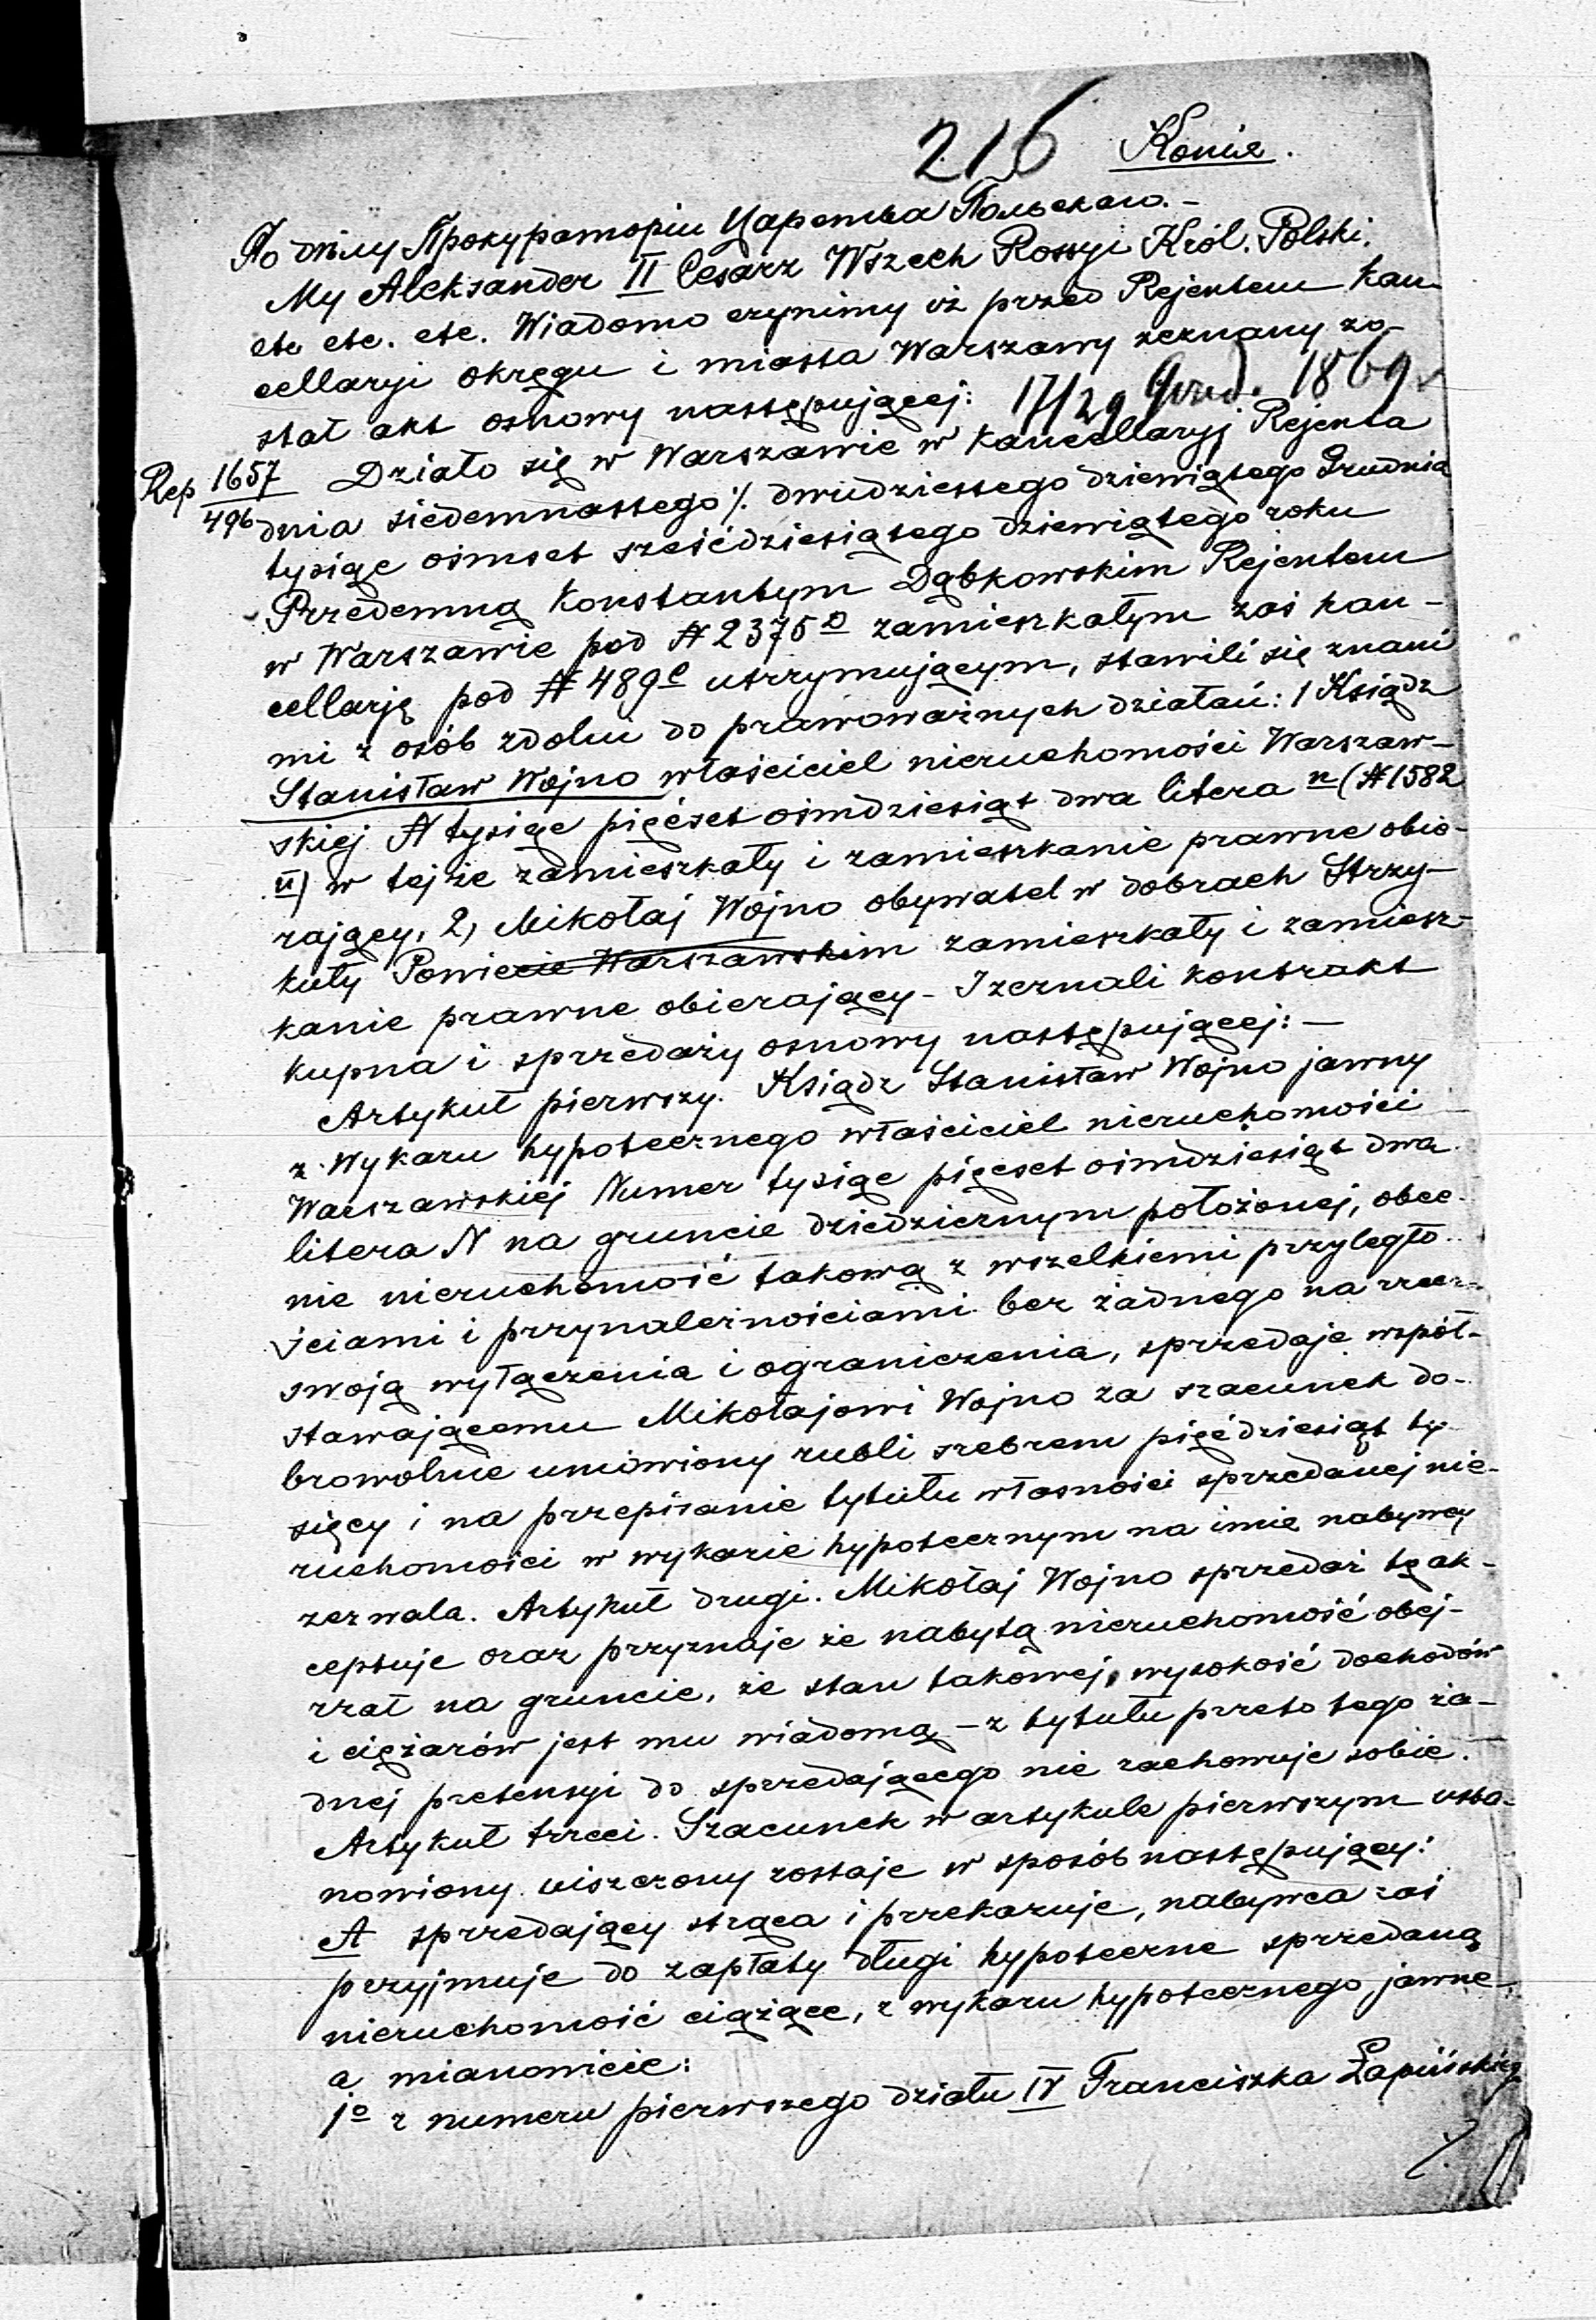 216 Konie.
По дѣлу Прокураторіи Царства Польскаго.-
My Aleksander II Cesarz Wszech Rossyi Król. Polski.
etc etc. etc. Wiadomo czynimy iż przed Rejentem Kan-
cellaryi okręgu i miasta Warszawy zeznany zo-
stał akt osnowy następującej: 17/29 Grud. 1869
Rep 1657/496 Działo się w Warszawie w Kancellaryj Rejenta
dnia siedemnastego /. dwudziestego dziewiątego Grudnia
tysiąc ośmset sześćdziesiątego dziewiątego roku
Przedemną Konstantym Dąbkowskim Rejentem
w Warszawie pod N 2375 D zamieszkałym zaś kan-
cellarję pod N 489 c utrzymującym, stawili się znani
mi z osób zdolni do prawoważnych działań: 1 Ksiądz
Stanisław Wojno właściciel nieruchomości Warszaw-
skiej N tysiąc pięćset ośmdziesiąt dwa litera n (N 1582
n) w tejże zamieszkały i zamieszkanie prawne obie-
rający, 2, Mikołaj Wojno obywatel w dobrach Strzy-
kuły Powiecie Warszawskim zamieszkały i zamiesz-
kanie prawne obierający - I zeznali kontrakt
kupna i sprzedaży osnowy następującej: —
Artykuł pierwszy. Ksiądz Stanisław Wojno jawny
z Wykazu hypotecznego właściciel nieruchomości
Warszawskiej Numer tysiąc pięcset ośmdziesiąt dwa
litera N na gruncie dziedzicznym położonej, obec-
nie nieruchomość takową z wszelkiemi przyległo-
ściami i przynależnościami bez żadnego na rzecz
swoją wyłączenia i ograniczenia, sprzedaje współ-
stawającemu Mikołajowi Wojno za szacunek do-
browolnie umówiony rubli srebrem pięćdziesiąt ty-
sięcy i na przepisanie tytułu własności sprzedanej nie-
ruchomości w wykazie hypotecznym na imię nabywcy
zezwala. Artykuł drugi. Mikołaj Wojno sprzedaż tę ak-
ceptuje oraz przyznaje że nabytą nieruchomość obej-
rzał na gruncie, że stan takowej, wysokość dochodów
i ciężarów jest mu wiadomą - z tytułu przeto tego ża-
dnej pretensyi do sprzedającego nie zachowuje sobie.
Artykuł trzeci. Szacunek w artykule pierwszym usta-
nowiony uiszczony zostaje w sposób następujący:
A sprzedający strąca i przekazuje, nabywca zaś
przyjmuje do zapłaty długi hypoteczne sprzedaną
nieruchomość ciążące, z wykazu hypotecznego jawne-
a mianowicie:
1o z numeru pierwszego działu IV Franciszka Łapińskieg